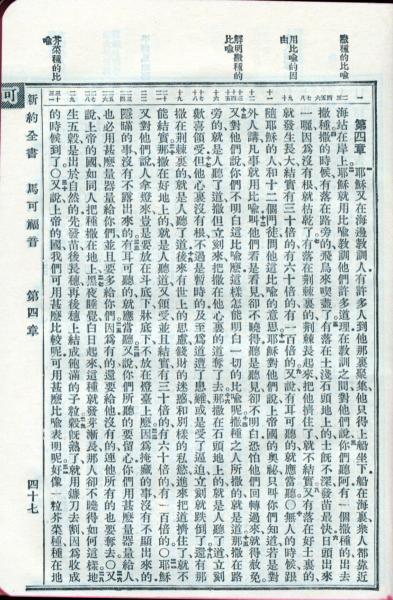 撒種的比喻
用比喻的因由
解明撒種的比喻
芥菜種的比喻
第四章 耶穌又在海邊教訓人有許多人到他那裏聚集他只得上船坐下船在海裏衆人都靠近
海站在岸上耶穌就用比喻教訓他們許多道理在教訓之間對他們說你們聽阿有一個撒種的出去
撒種撒種的時候有落在路旁的飛鳥來喫盡了有落在土淺石頭地上的土旣不深發苗最快日頭出來
一曬因爲沒有根就枯乾了有落在荆棘裏的荆棘長起來把他擠住了就不結實又有落在好土裏的
就發生長大結實有三十倍的有六十倍的有一百倍的又說有耳可聽的就應當聽○無人的時候跟
隨耶穌的人和十二個門徒問他這比喻的意思耶穌對他們說上帝國的奥祕只叫你們知道若是對
外人講凡事就用比喻叫他們看是看見却不曉得聽是聽見却不明白恐怕他們回轉過來就得赦免
又對他們說你們不明白這比喻麼這樣怎能明白一切的比喻呢撒種之人所撒的就是道那撒在路
旁的就是人聽了道撒但立刻來把撒在他心裏的道奪了去那撒在石頭地上的就是人聽了道立刻
歡喜領受但他心裏沒有根不過是暫時的及至爲道遭了患難或是受了逼迫立刻就跌倒了還有那
撒在荆棘裏的就是人聽了道後來有世上的思慮錢財的迷惑和別樣的私慾進來把道擠住了就不
能結實那撒在好地上的就是人聽道又領受並且結實有三十倍的有六十倍的有一百倍的○耶穌
又對他們說人拿燈來豈是要放在斗底下牀底下不放在燈臺上麼因爲掩藏的事沒有不顯出來的
隱瞞的事沒有不露出來的有耳可聽的就應當聽又說你們所聽的要留心你們用甚麼量器量給人
也必用甚麼量器量給你們並且要多給你們因爲有的還要給他沒有的連他所有的也要奪去○又
說上帝的國如同人把種撒在地上黑夜睡覺白日起來這種就發芽漸長那人卻不曉得如何這樣地
生五穀是出於自然的先發苗後長穗再後穗上結成飽滿的子粒穀旣熟了就用鐮刀去割因爲收成
的時候到了○又說上帝的國我們可用甚麼比較呢可用甚麼比喻表明呢好像一粒芥菜種種在地
可
新約全書 馬可福音 第四章 四十七